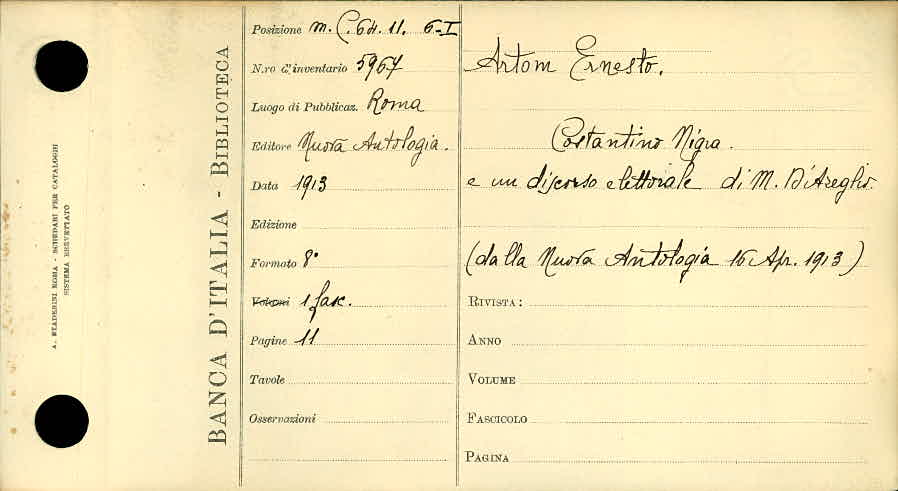 A. STADERINI ROMA - SCHEDARI PER CATALOGHI
SISTEMA BREVETTATO
BANCA D'ITALIA - BIBLIOTECA
Posizione m. C. 64. 11. 6-I
N.ro d'inventario 5967
Luogo di Pubblicaz. Roma
Editore Nuova Antologia.
Data 1913
Edizione
Formato 8°
Volumi 1 fasc.
Pagine 11
Tavole
Osservazioni
Artom Ernesto.
Costantino Nigra.
e un discorso elettorale di M. D'Azeglio.
(dalla Nuova Antologia 16 Apr. 1913)
RIVISTA:
ANNO
VOLUME
FASCICOLO
PAGINA